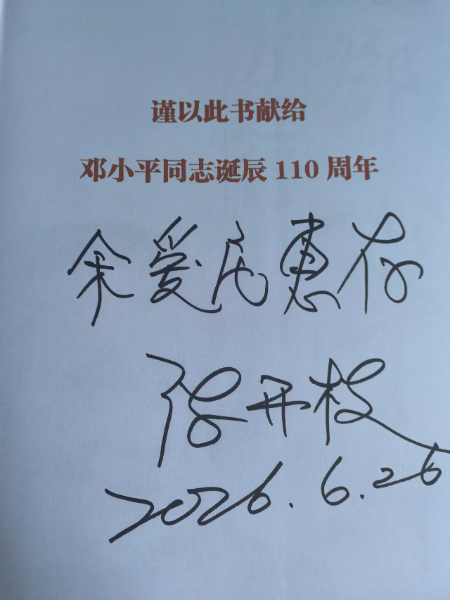 谨以此书献给
邓小平同志诞辰110周年
余爱民惠存
张开枝
2026.6.26